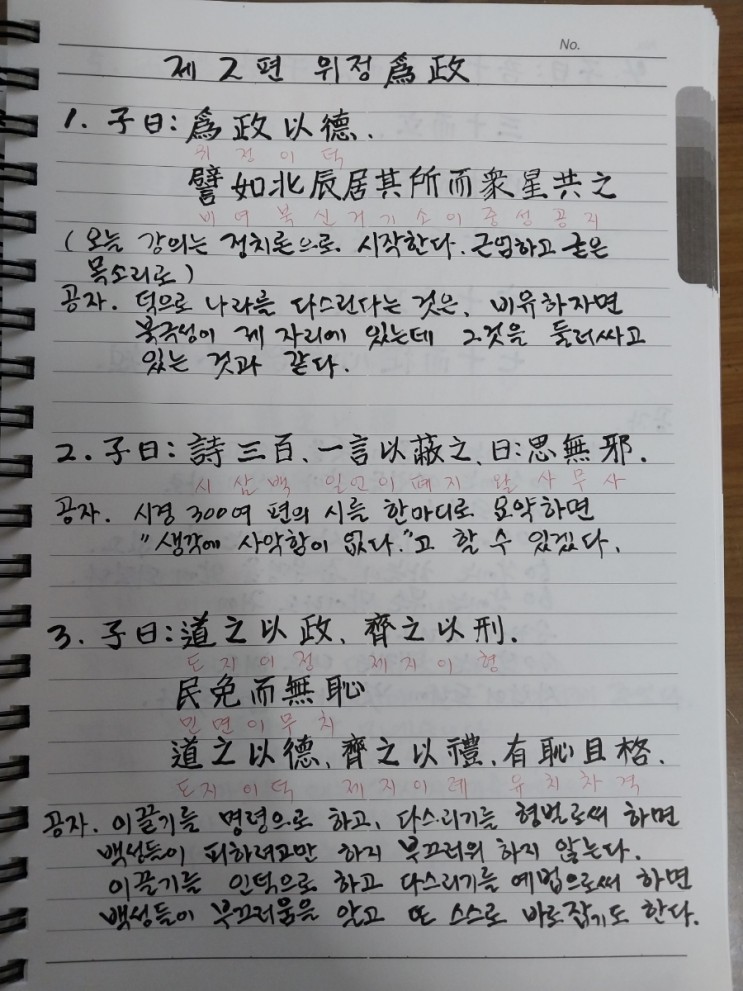 No.
제 2 편 위정 爲政
1. 子曰: 爲政以德.
위 정 이 덕
譬如北辰居其所而衆星共之
비 여 북 신 거 기 소 이 중 성 공 지
(오늘 강의는 정치론으로 시작한다. 근엄하고 굵은
목소리로)
공자. 덕으로 나라를 다스린다는 것은, 비유하자면
북극성이 제 자리에 있는데 그것을 둘러싸고
있는 것과 같다.
2. 子曰: 詩三百, 一言以蔽之, 曰: 思無邪.
시 삼 백 일 언 이 폐 지 왈 사 무 사
공자. 시경 300여 편의 시를 한마디로 요약하면
"생각에 사악함이 없다."고 할 수 있겠다.
3. 子曰: 道之以政, 齊之以刑.
도 지 이 정 제 지 이 형
民免而無恥
민 면 이 무 치
道之以德, 齊之以禮, 有恥且格.
도 지 이 덕 제 지 이 례 유 치 차 격
공자. 이끌기를 명령으로 하고, 다스리기를 형벌로써 하면
백성들이 피하려고만 하지 부끄러워 하지 않는다.
이끌기를 인덕으로 하고 다스리기를 예법으로써 하면
백성들이 부끄러움을 알고 또 스스로 바로잡기도 한다.